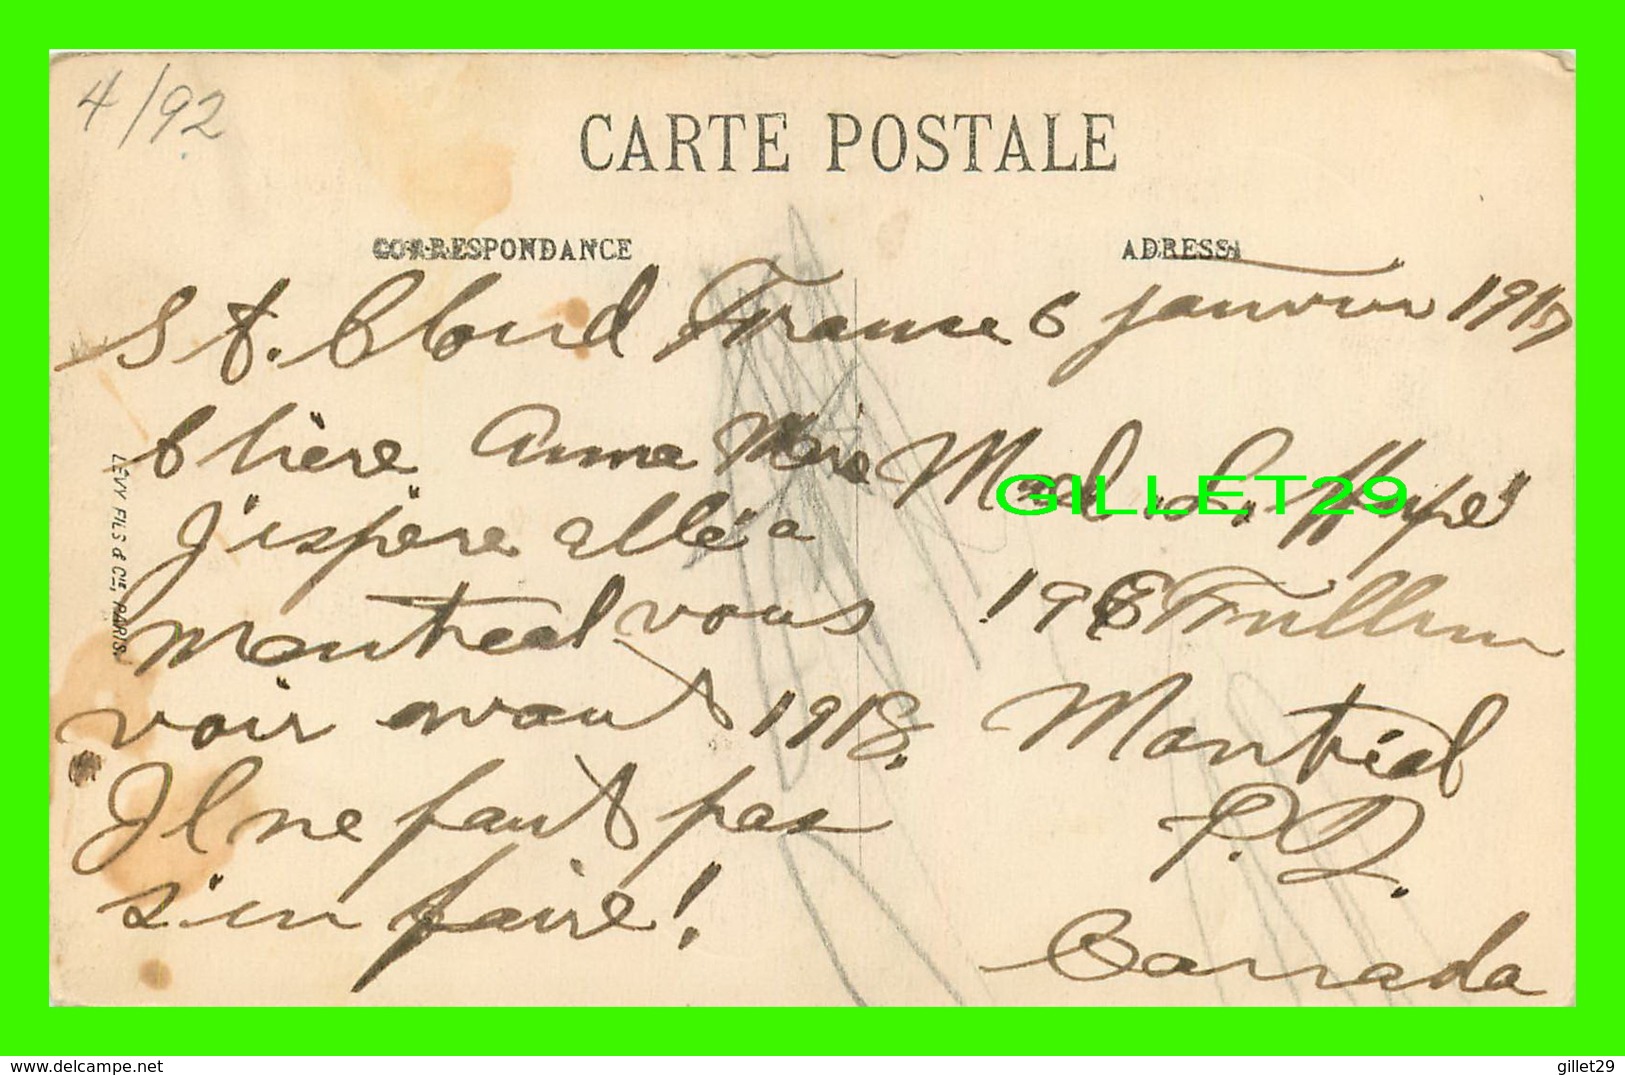 4/92
CARTE POSTALE
CORRESPONDANCE
ADRESSE
St. Cloud France 6 janvier 1917
Chère Anna Mère
J'espère allé a
Montreal vous
voir avant 1918.
Il ne faut pas
s'en faire!
Mad. L.
198 E Fullum
Montréal
P.Q.
Canada
LÉVY FILS & Cie, PARIS.
GILLET29
gillet29